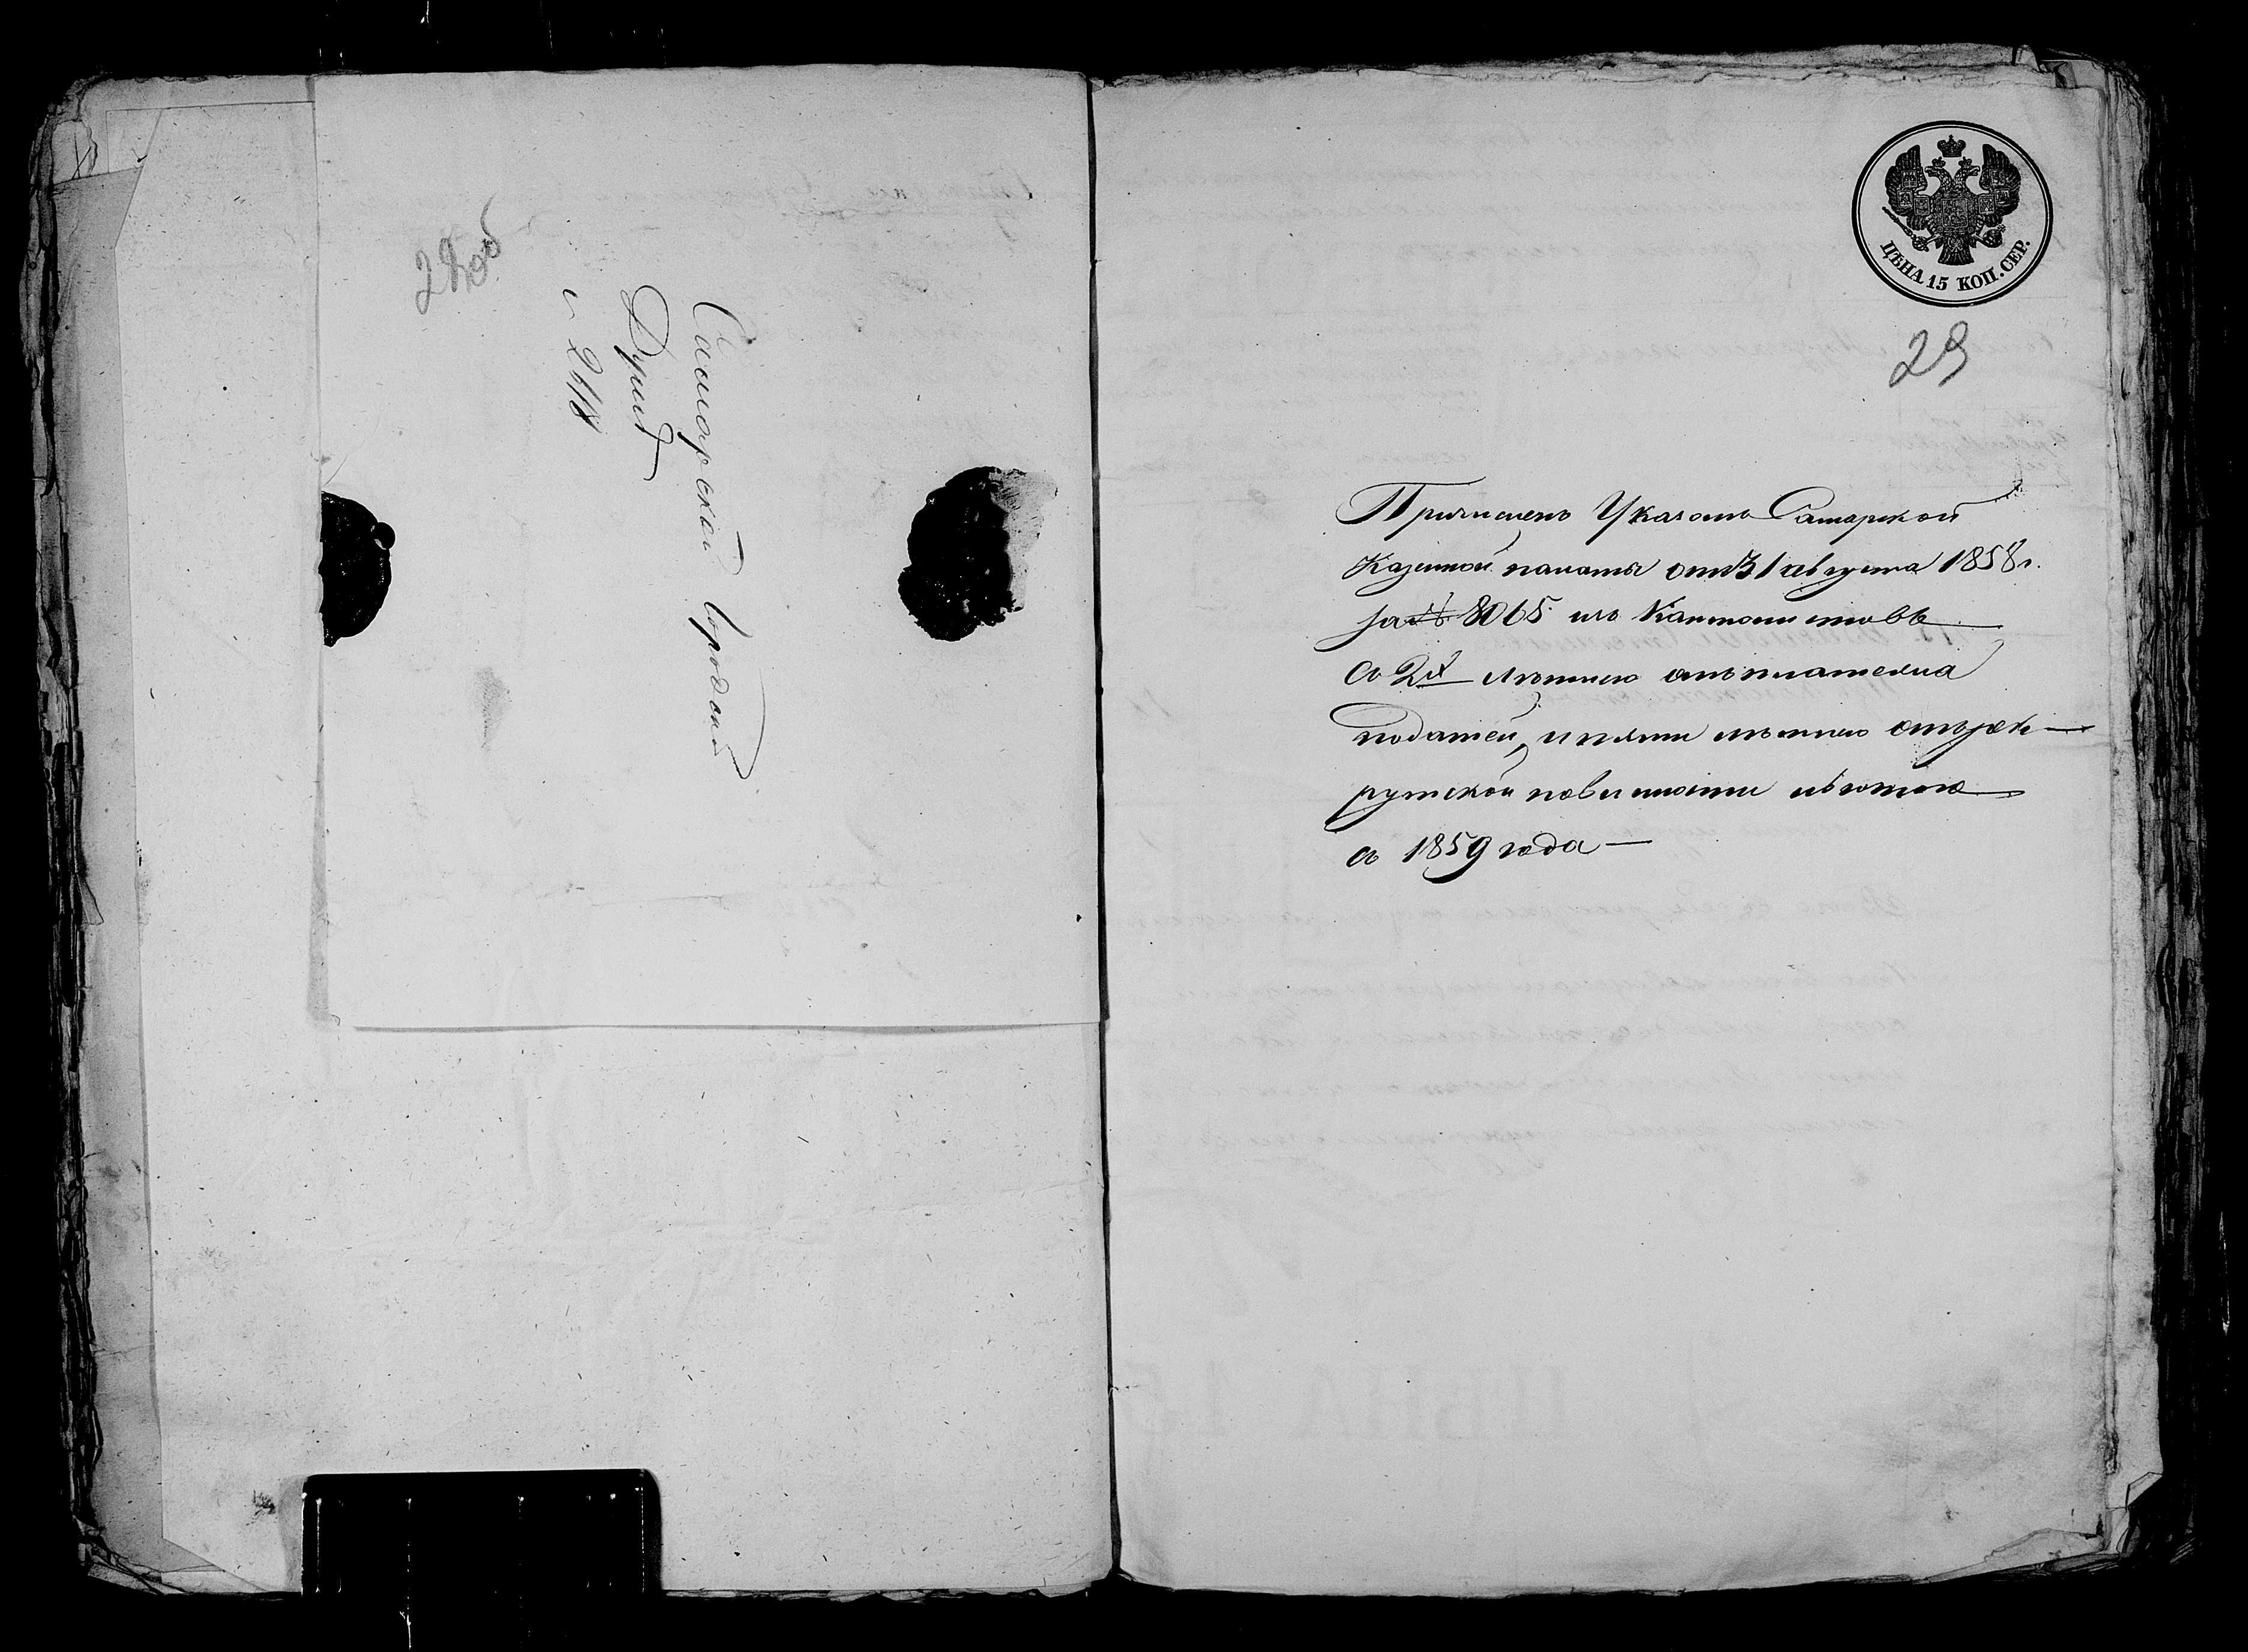 28об
Самарской Городской
Думѣ
№ 2118
ЦѢНА 15 КОП. СЕР.
29
Причисленъ Указомъ Самарской
Казенной палаты отъ 31 августа 1858 г.
за № 8065 изъ Кантонистовъ
съ 2х лѣтнею отъ платежа
податей, и пяти лѣтнею отъ рек-
рутской повинности льготою
съ 1859 года —